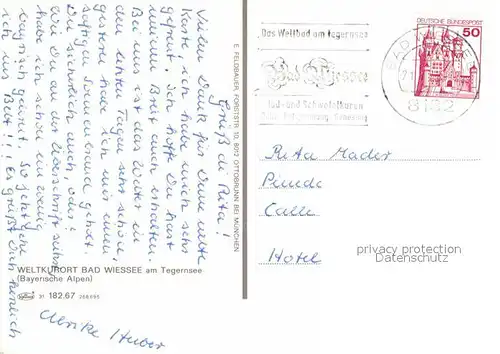 Grüß di Rita!
Vielen Dank für Deine nette
Karte. Ich habe mich sehr
gefreut. Ich hoffe Du hast
meinen Brief auch erhalten.
Bei uns ist das Wetter in
den letzten Tagen sehr schön,
gestern habe ich mir einen
saftigen Sonnenbrand geholt.
Du sicherlich auch, oder?
Wie Du an der Überschrift siehst
habe ich schon ein wenig
bayrisch gelernt. So jetzt gehe
ich ins Bett!!! Es grüßt Dich herzlich
Ulrike Huber
WELTKURORT BAD WIESSEE am Tegernsee
(Bayerische Alpen)
31 182.67
E. FELDBAUER, FORSTSTR. 10, 8012 OTTOBRUNN BEI MÜNCHEN
Das Weltbad am Tegernsee
Bad Wiessee
Jod- und Schwefelkuren
DEUTSCHE BUNDESPOST
50
BAD WIESSEE
8182
Rita Mader
Pineda
Calle
Hotel
privacy protection
Datenschutz